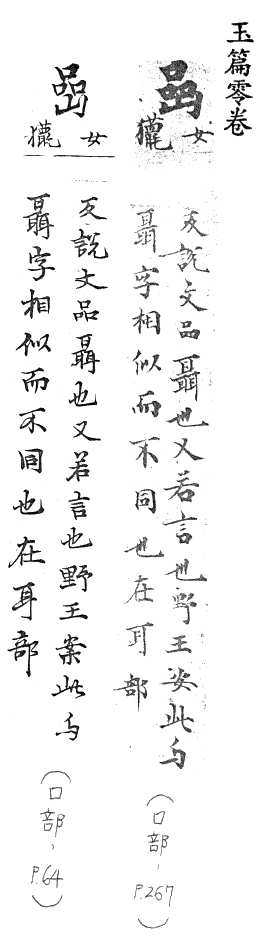 玉篇零卷
喦
女
獵
反說文品聶也又若言也野王案此与
聶字相似而不同也在耳部
(口部、P.267)
喦
女
獵
反說文品聶也又若言也野王案此与
聶字相似而不同也在耳部
(口部、P.64)